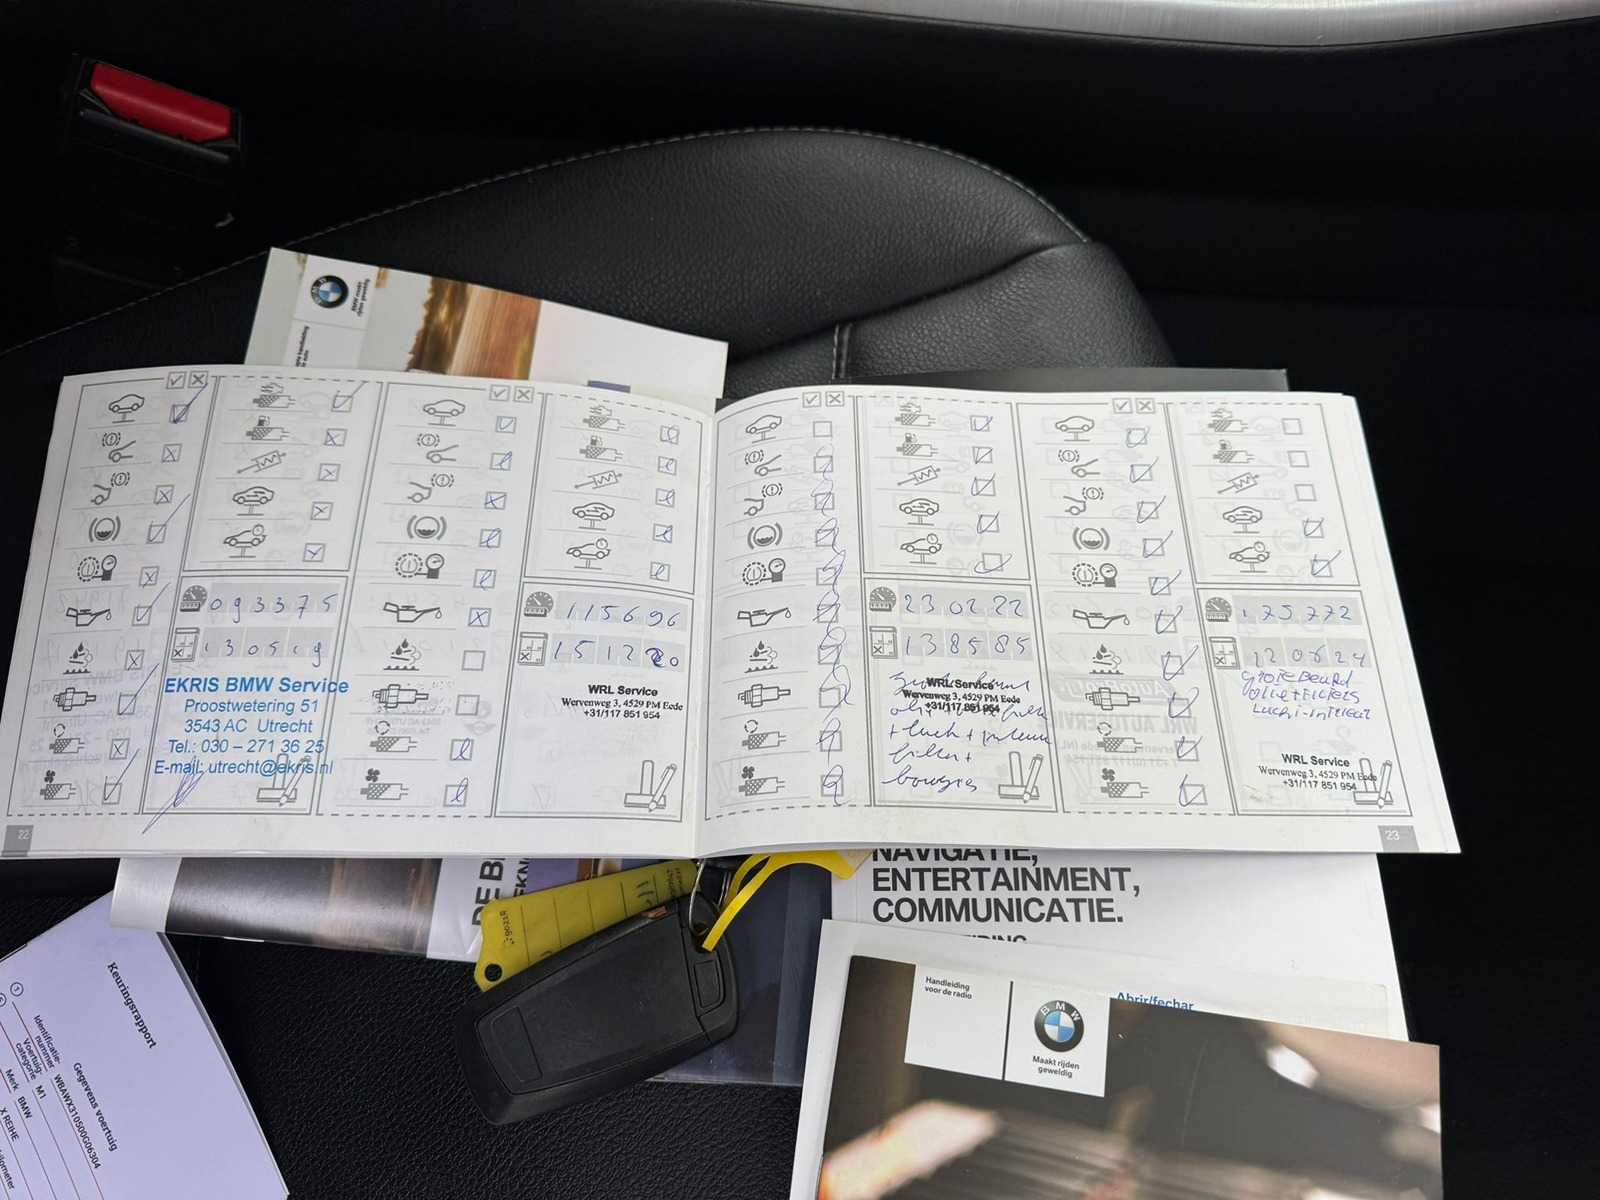 BMW maakt
rijden geweldig
093375
130519
EKRIS BMW Service
Proostwetering 51
3543 AC Utrecht
Tel.: 030 – 271 36 25
E-mail: utrecht@ekris.nl
22
115696
1512 20
WRL Service
Wervenweg 3, 4529 PM Eede
+31/117 851 954
23 02 22
138585
WRL Service
Wervenweg 3, 4529 PM Eede
+31/117 851 954
filter +
bougies
175772
WRL Service
Wervenweg 3, 4529 PM Eede
+31/117 851 954
23
NAVIGATIE,
ENTERTAINMENT,
COMMUNICATIE.
Handleiding
voor de radio
BMW
Maakt rijden
geweldig
Abrir/fechar
Keuringsrapport
Gegevens voertuig
Identificatie-
nummer WBAWX310500G06304
Voertuig-
categorie M1
Merk BMW
X REIHE